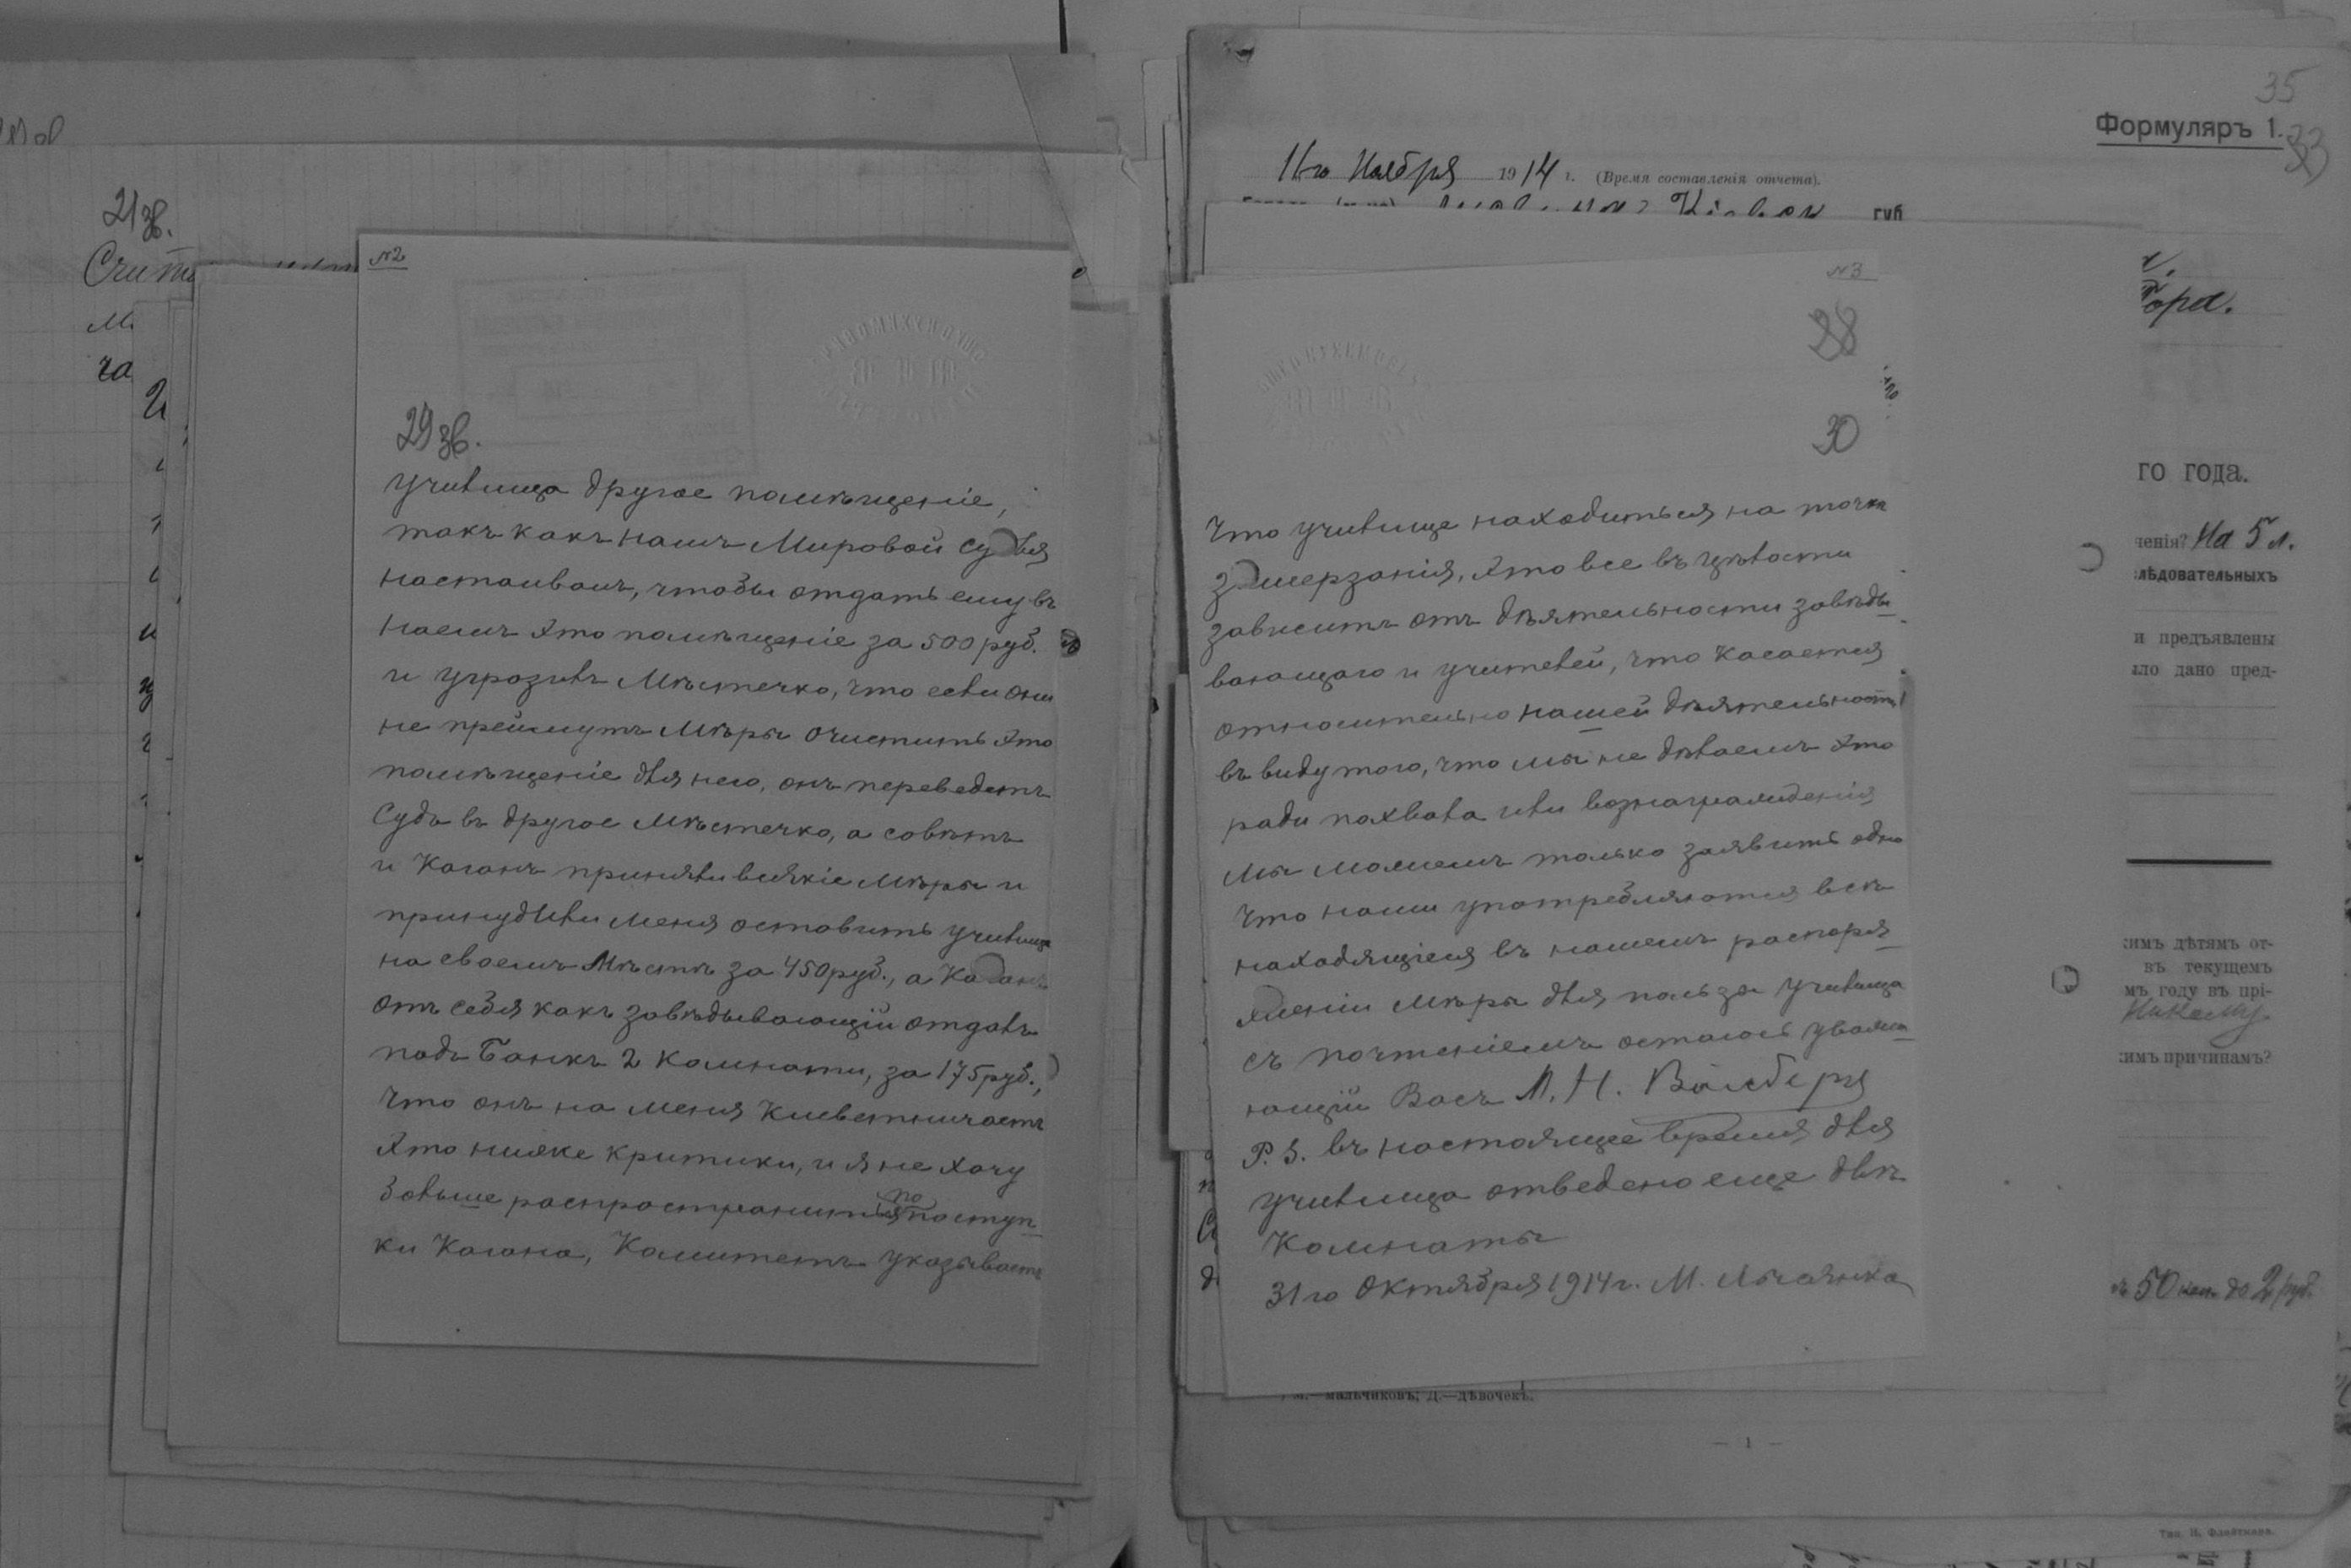 21 зв.
№2
29 зв.
училища другое помѣщеніе,
такъ какъ нашъ Мировой Судья
настоивалъ, чтобы отдать ему въ
наемъ это помѣщеніе за 500 руб.
и угрозилъ Мѣстечко, что если они
не преймутъ Мѣры очистить это
помѣщеніе для него, онъ переведетъ
Судъ въ другое Мѣстечко, а совѣтъ
и Каганъ приняли всякіе Мѣры и
принудили меня оставить училище
на своемъ Мѣстѣ за 450 руб., а Каганъ
отъ себя какъ завѣдывающій отдалъ
подъ Банкъ 2 комнати, за 175 руб.,
Что онъ на меня Клеветничаетъ
Это ниже критики, и я не хочу
больше распространится по поступ-
ки Кагана, Комитетъ указываетъ
№3
28
30
Что училище находиться на точкѣ
замерзанія, это все въ цѣлости
зависитъ отъ дѣятельности завѣды-
вающаго и учителей, что касается
относительно нашей дѣятельности
въ виду того, что мы не дѣлаемъ это
ради похвала или вознагражденія
Мы можемъ только заявить одно
Что нами употребляются всѣ
находящіеся въ нашемъ распоря-
женіи Мѣры для пользы училища
съ почтеніемъ остаюсь уважа-
ющій Васъ М. Н.
P. S. въ настоящее время для
училища отведено еще двѣ
Комнаты
31го Октября 1914 г. М.
35
Формуляръ 1.
33
11-го Ноября 1914 г. (Время составленія отчета).
губ
го года.
ченія? На 5 л.
лѣдовательныхъ
и предъявлены
ло дано пред-
имъ дѣтямъ от-
въ текущемъ
мъ году въ прі-
Никому
имъ причинамъ?
50 коп. до 2 руб.
м.—мальчиковъ; д.—дѣвочекъ.
— 1 —